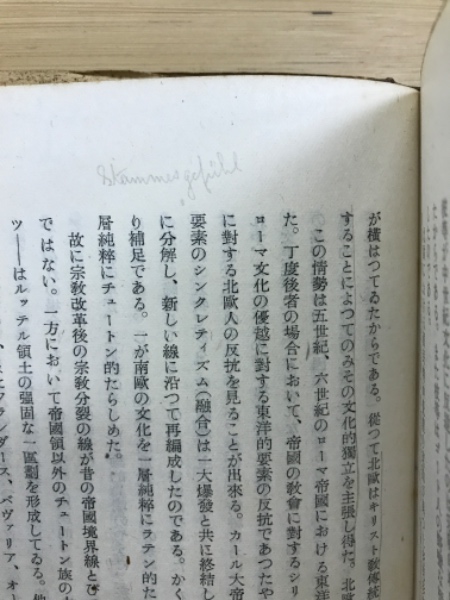 Stammesgefühl
が横はつてゐたからである。從つて北歐はキリスト敎傳統
することによつてのみその文化的獨立を主張し得た。北歐
この情勢は五世紀、六世紀のローマ帝國における東洋
た。丁度後者の場合において、帝國の敎會に對するシリ
ローマ文化の優越に對する東洋的要素の反抗であつたや
に對する北歐人の反抗を見ることが出來る。カール大帝
要素のシンクレティズム(融合)は一大爆發と共に終結し
に分解し、新しい線に沿つて再編成したのである。かく
り補足である。一が南歐の文化を一層純粹にラテン的た
層純粹にチュートン的たらしめた。
故に宗敎改革後の宗敎分裂の線が昔の帝國境界線と
ではない。一方において帝國領以外のチュートン族の
ツ――はルッテル領土の强固な一區劃を形成してゐる。他
フランダース、ベヴァリア、オー